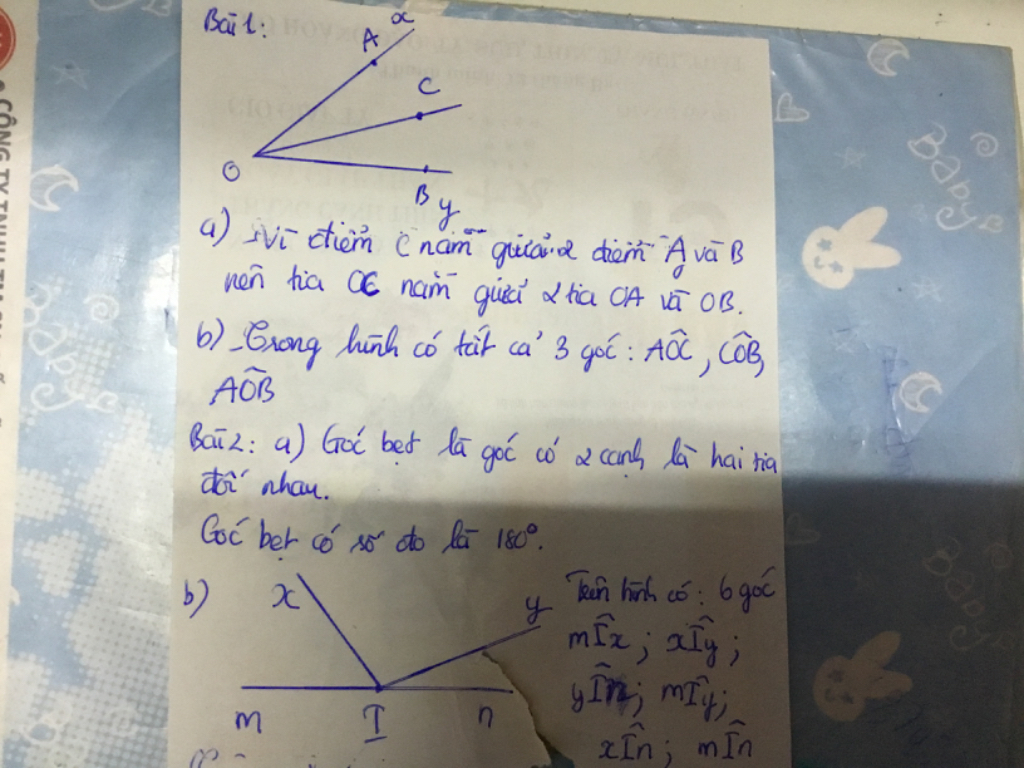 Bài 1:
x
A
C
O
B y
a) Vì điểm C nằm giữa 2 điểm A và B
nên tia OC nằm giữa 2 tia OA và OB.
b) Trong hình có tất cả 3 góc: AÔC, CÔB,
AÔB
Bài 2: a) Góc bẹt là góc có 2 cạnh là hai tia
đối nhau.
Góc bẹt có số đo là 180°.
b)
x
y
m I n
Trên hình có: 6 góc
mÎx ; xÎy ;
yÎn ; mÎy ;
xÎn ; mÎn
CÔNG TY TNHH
Baby
Baby
Baby
Baby